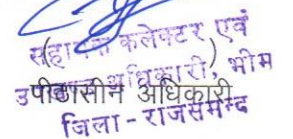 (                    )
सहायक कलेक्टर एवं
उपखण्ड अधिकारी, भीम
पीठासीन अधिकारी
जिला - राजसमन्द